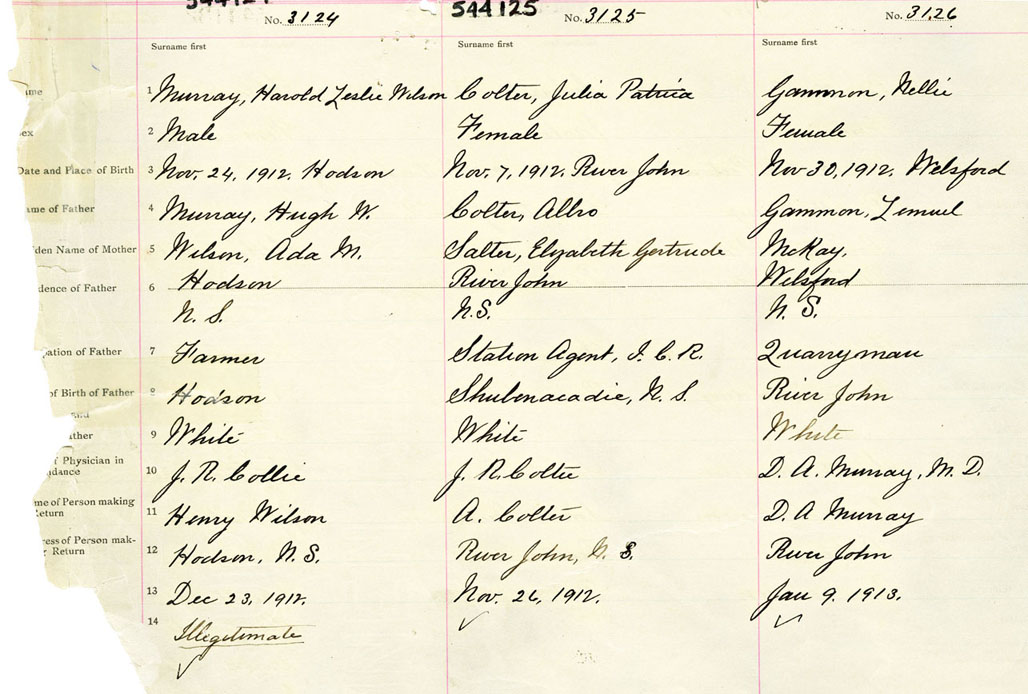 544125
No. 3124 No. 3125 No. 3126
Surname first Surname first Surname first
ame 1 Murray, Harold Leslie Wilson Colter, Julia Patricia Gammon, Nellie
ex 2 Male Female Female
Date and Place of Birth 3 Nov. 24, 1912. Hodson Nov. 7, 1912. River John Nov 30, 1912. Welsford
ame of Father 4 Murray, Hugh W. Colter, Albro Gammon, Lemuel
den Name of Mother 5 Wilson, Ada M. Salter, Elizabeth Gertrude McKay,
dence of Father 6 Hodson River John Welsford
N. S. N.S. N. S.
ation of Father 7 Farmer Station Agent, I. C. R. Quarryman
of Birth of Father 8 Hodson Shubenacadie, N. S. River John
and
ather 9 White White White
f Physician in
dance 10 J. R. Collie J. R. Collie D. A. Murray, M. D.
me of Person making
Return 11 Henry Wilson A. Colter D. A Murray
ress of Person mak-
g Return 12 Hodson, N. S. River John, N. S. River John
13 Dec 23, 1912. Nov. 26, 1912. Jan 9. 1913.
14 Illegitimate